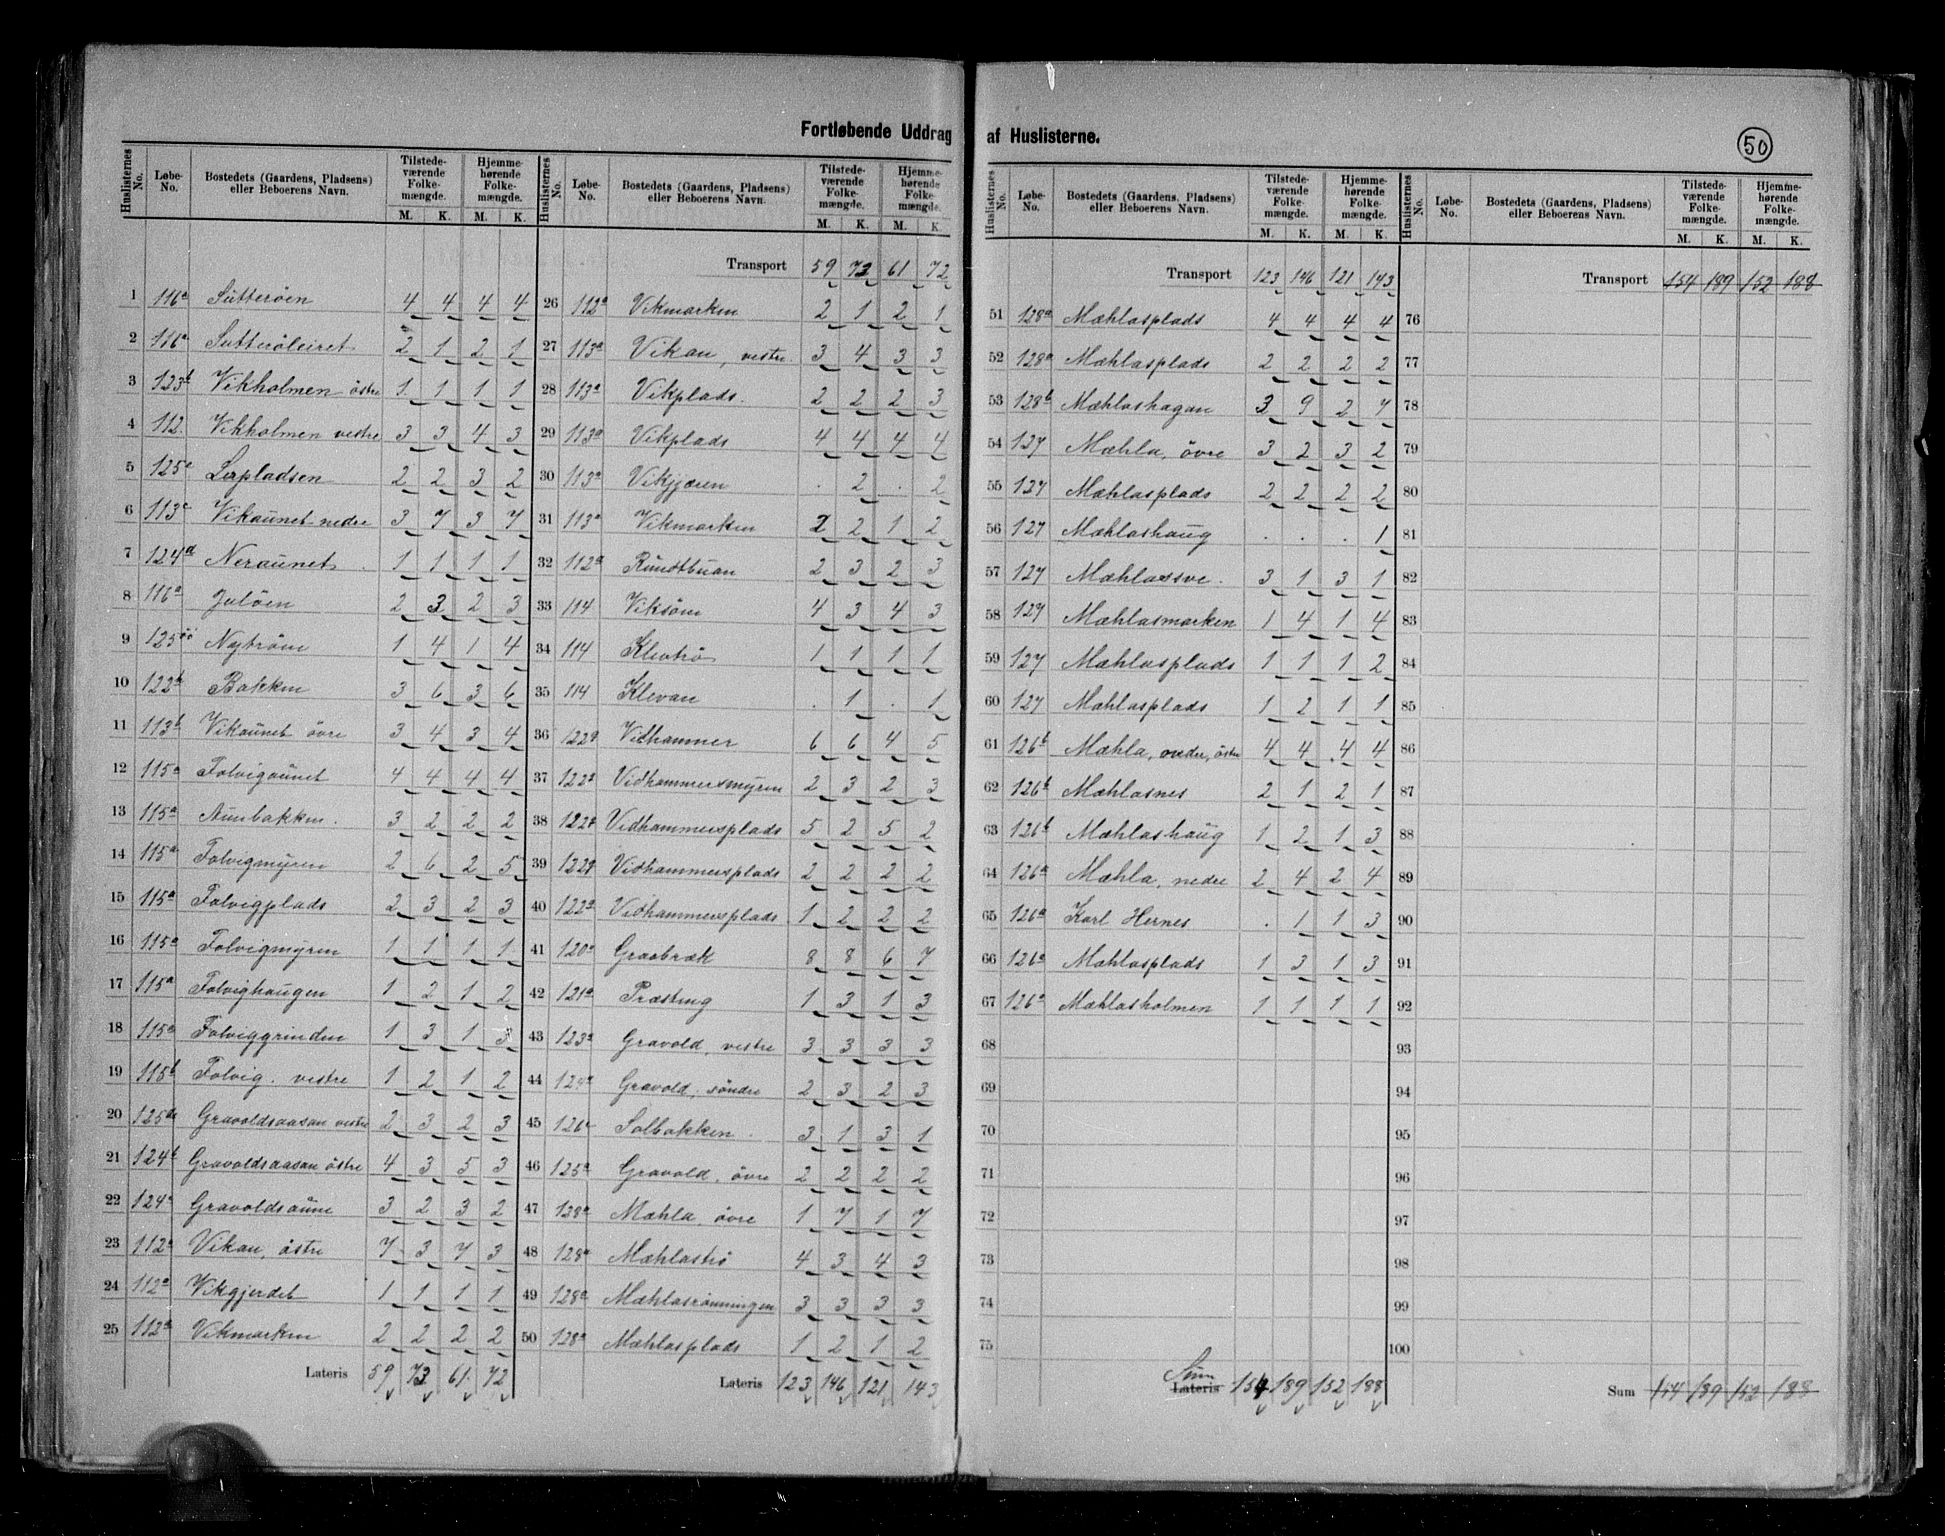 Fortløbende Uddrag af Huslisterne.
50
Huslisternes No. Løbe-No. Bostedets (Gaardens, Pladsens) eller Beboerens Navn. Tilstedeværende Folkemængde. M. K. Hjemmehørende Folkemængde. M. K.
1 116a Sutterøen 4 4 4 4
2 116a Sutterøleiret 2 1 2 1
3 123b Vikholmen östre 1 1 1 1
4 112 Vikholmen vestre 3 3 4 3
5 125c Lerpladsen 2 2 3 2
6 113c Vikaunet nedre 3 7 3 7
7 124d Neraunet 1 1 1 1
8 116a Juløen 2 3 2 3
9 125 Nytrøen 1 4 1 4
10 122b Bakken 3 6 3 6
11 113b Vikaunet övre 3 4 3 4
12 115a Folvigaunet 4 4 4 4
13 115a Aunbakken 3 2 2 2
14 115a Folvigmyren 2 6 2 5
15 115a Folvigplads 2 3 2 3
16 115a Folvigmyren 1 1 1 1
17 115a Folvighaugen 1 2 1 2
18 115a Folviggrinden 1 3 1 3
19 115b Folvig, vestre 1 2 1 2
20 125 Gravoldsaasan vestre 2 3 2 3
21 124b Gravoldsaasan östre 4 3 5 3
22 124c Gravoldsaune 3 2 3 2
23 112a Vikan, östre 7 3 7 3
24 112a Vikgjerdet 1 1 1 1
25 112a Vikmarken 2 2 2 2
Lateris 59 73 61 72
Huslisternes No. Løbe-No. Bostedets (Gaardens, Pladsens) eller Beboerens Navn. Tilstedeværende Folkemængde. M. K. Hjemmehørende Folkemængde. M. K.
Transport 59 73 61 72
26 112a Vikmarken 2 1 2 1
27 113a Vikan, vestre. 3 4 3 3
28 113a Vikplads. 2 2 2 3
29 113a Vikplads 4 4 4 4
30 113a Vikjæren . 2 . 2
31 113a Vikmarken 2 2 1 2
32 112a Rundtbuan 2 3 2 3
33 114 Viksøm 4 3 4 3
34 114 Klevtrö 1 1 1 1
35 114 Klevan . 1 . 1
36 122a Vidhammer 6 6 4 5
37 122a Vidhammersmyren 2 3 2 3
38 122a Vidhammersplads 5 2 5 2
39 122a Vidhammersplads 2 2 2 2
40 122a Vidhammersplads 1 2 2 2
41 120a Graabræk 8 8 6 7
42 121a Præsteng 1 3 1 3
43 123a Gravold, vestre 3 3 3 3
44 124a Gravold, söndre 2 3 2 3
45 126c Solbakken 3 1 3 1
46 125a Gravold, övre 2 2 2 2
47 128a Mæhla, övre 1 7 1 7
48 128a Mæhlaströ 4 3 4 3
49 128a Mæhlasrönningen 3 3 3 3
50 128a Mæhlasplads 1 2 1 2
Lateris 123 146 121 143
Huslisternes No. Løbe-No. Bostedets (Gaardens, Pladsens) eller Beboerens Navn. Tilstedeværende Folkemængde. M. K. Hjemmehørende Folkemængde. M. K.
Transport 123 146 121 143
51 128a Mæhlasplads 4 4 4 4
52 128a Mæhlasplads 2 2 2 2
53 128b Mæhlashagan 3 9 2 7
54 127 Mæhla, övre 3 2 3 2
55 127 Mæhlasplads 2 2 2 2
56 127 Mæhlashaug . . . 1
57 127 Mæhlassve. 3 1 3 1
58 127 Mæhlasmarken 1 4 1 4
59 127 Mæhlasplads 1 1 1 2
60 127 Mæhlasplads 1 2 1 1
61 126b Mæhla, nedre, östre 4 4 4 4
62 126b Mæhlasnes 2 1 2 1
63 126b Mæhlashaug 1 2 1 3
64 126a Mæhla, nedre 2 4 2 4
65 126a Karl Hernes . 1 1 3
66 126a Mæhlasplads 1 3 1 3
67 126a Mæhlasholmen 1 1 1 1
68
69
70
71
72
73
74
75
Sum
Lateris 154 189 152 188
Huslisternes No. Løbe-No. Bostedets (Gaardens, Pladsens) eller Beboerens Navn. Tilstedeværende Folkemængde. M. K. Hjemmehørende Folkemængde. M. K.
Transport 154 189 152 188
76
77
78
79
80
81
82
83
84
85
86
87
88
89
90
91
92
93
94
95
96
97
98
99
100
Sum 154 189 152 188